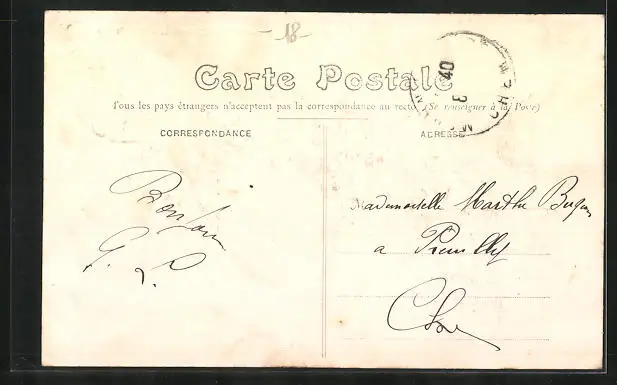 18
Carte Postale
Tous les pays étrangers n'acceptent pas la correspondance au recto (Se renseigner à la Poste)
CORRESPONDANCE
ADRESSE
Bonjour
G. L.
Mademoiselle Marthe
a Preuilly
Cher